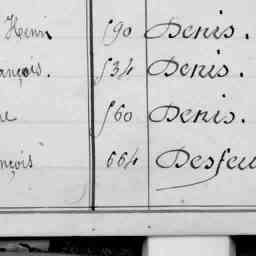 Henri 590 Denis.
ançois. 534 Denis.
560 Denis.
nçois 664 Desfeu